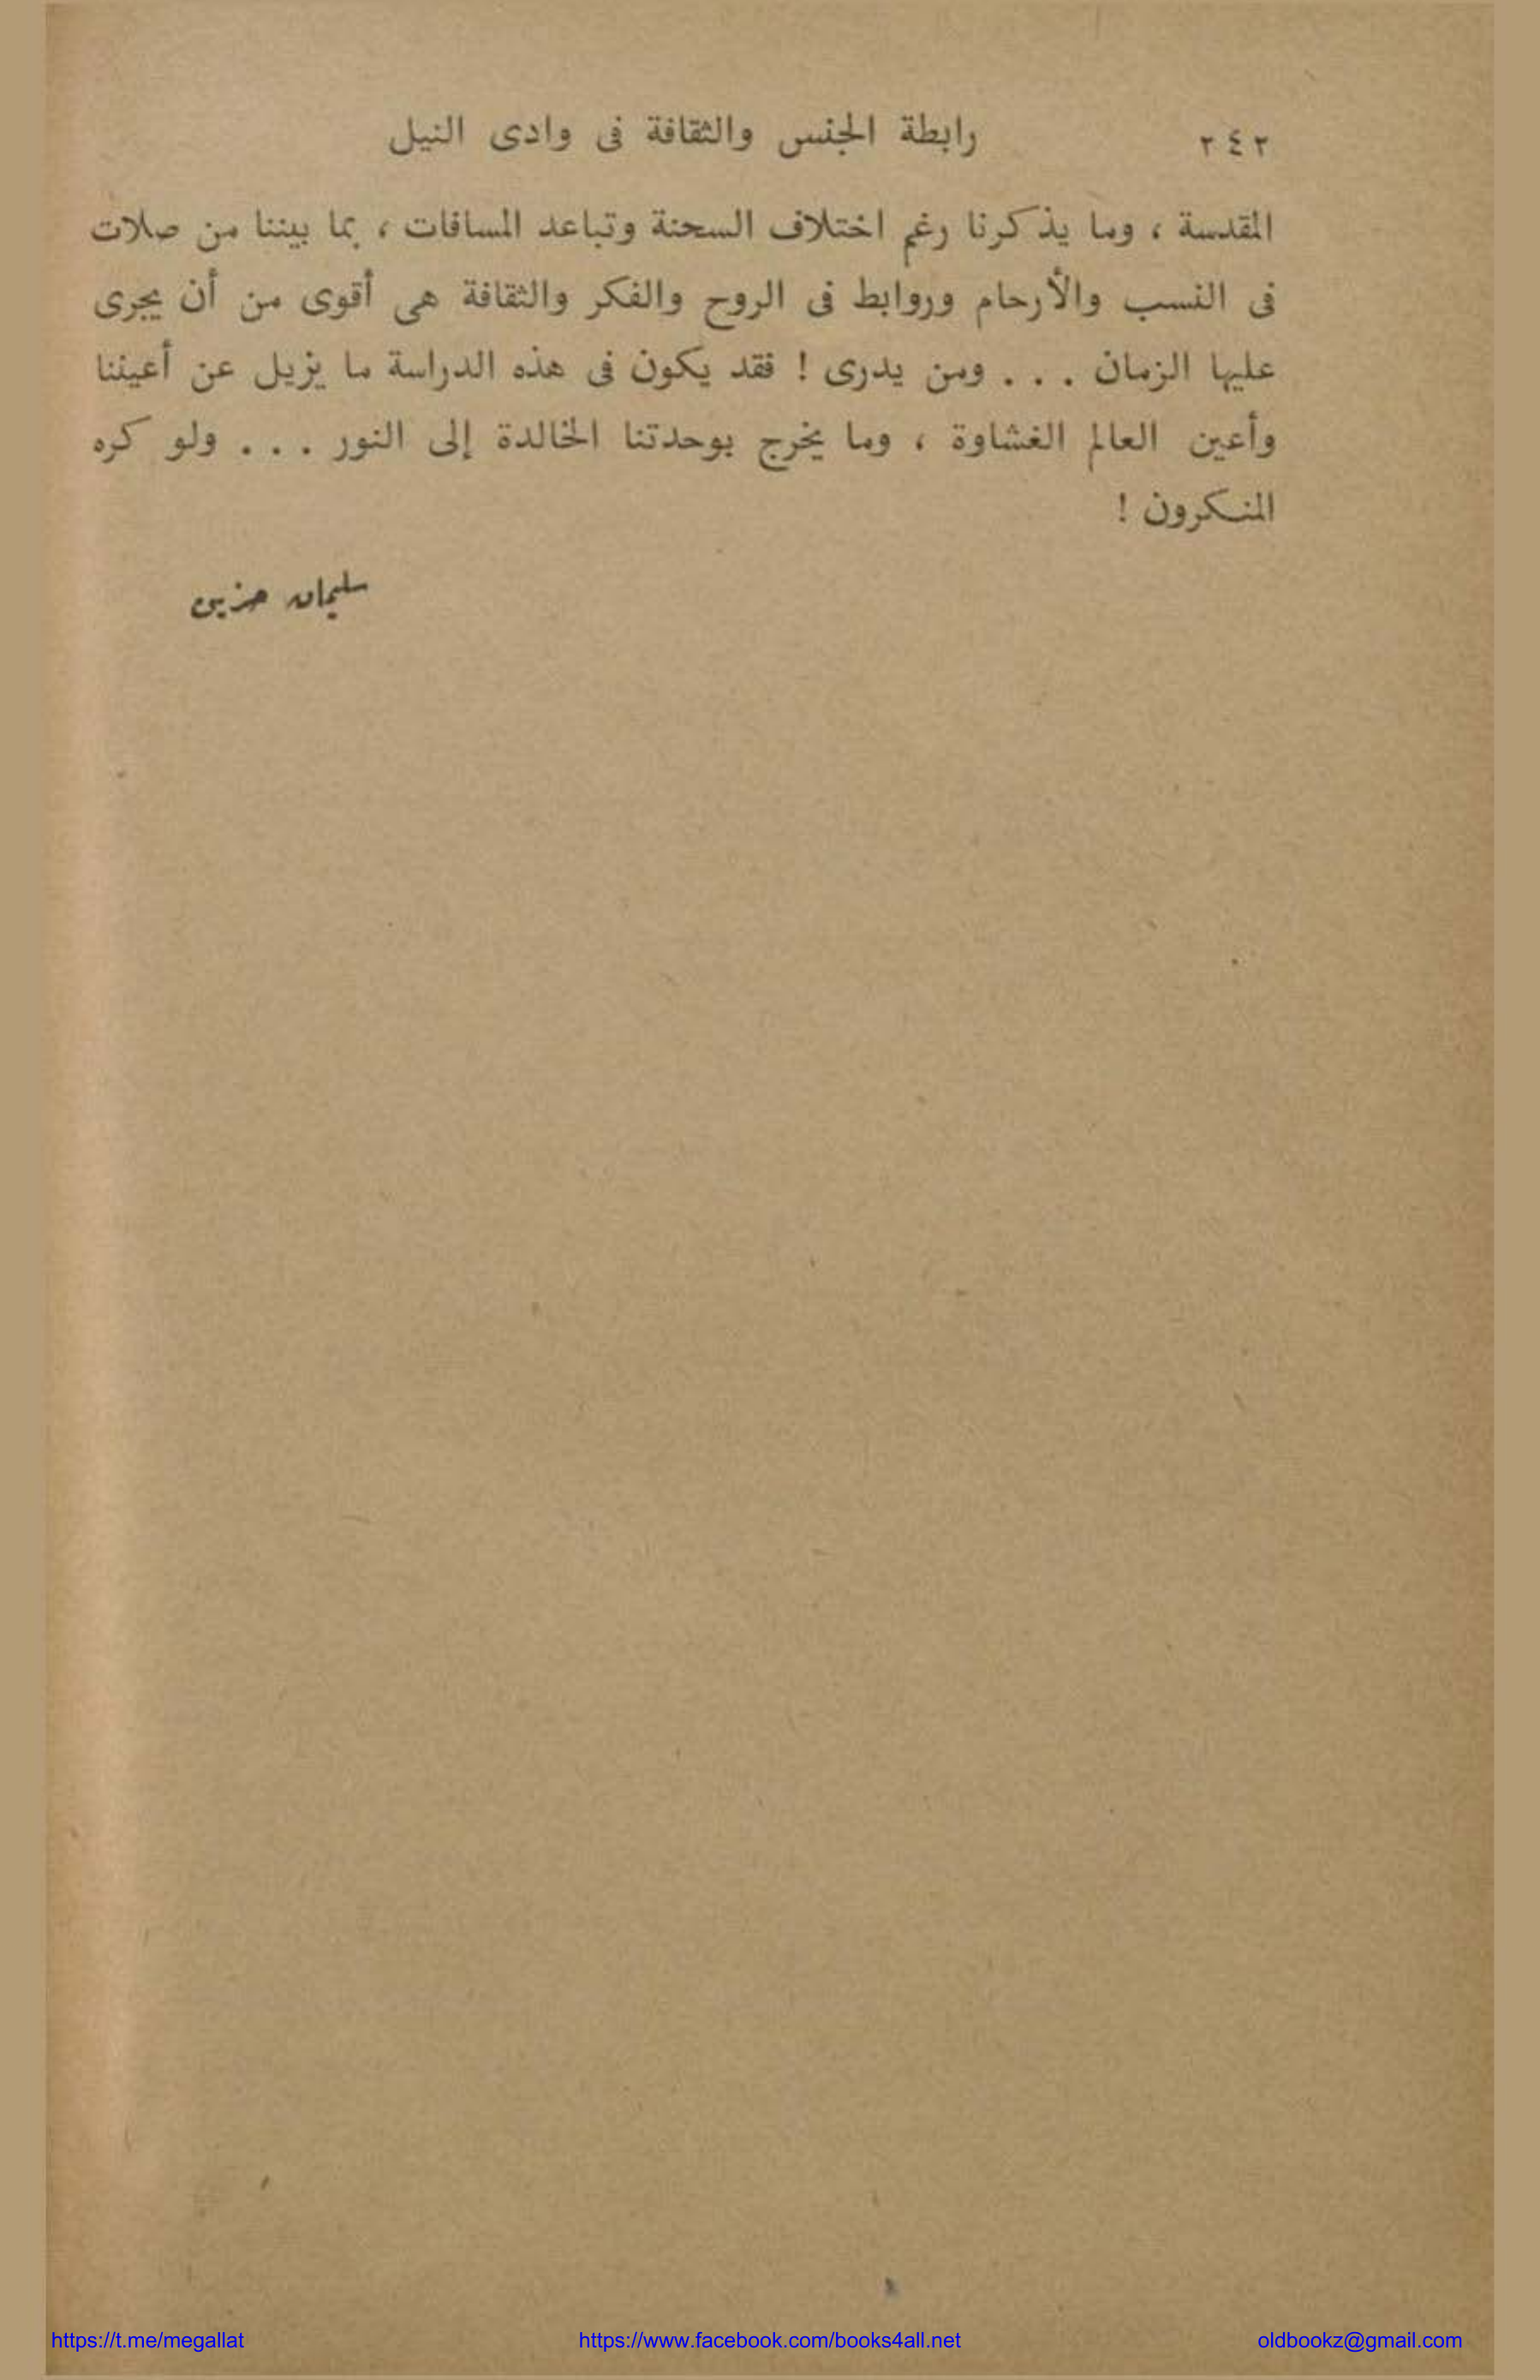 ٢٤٢ رابطة الجنس والثقافة فى وادى النيل
المقدسة ، وما يذكرنا رغم اختلاف السحنة وتباعد المسافات ، بما بيننا من صلات
فى النسب والأرحام وروابط فى الروح والفكر والثقافة هى أقوى من أن يجرى
عليها الزمان . . . ومن يدرى ! فقد يكون فى هذه الدراسة ما يزيل عن أعيننا
وأعين العالم الغشاوة ، وما يخرج بوحدتنا الخالدة إلى النور . . . ولو كره
المنكرون !
سليمان حزين
https://t.me/megallat https://www.facebook.com/books4all.net oldbookz@gmail.com